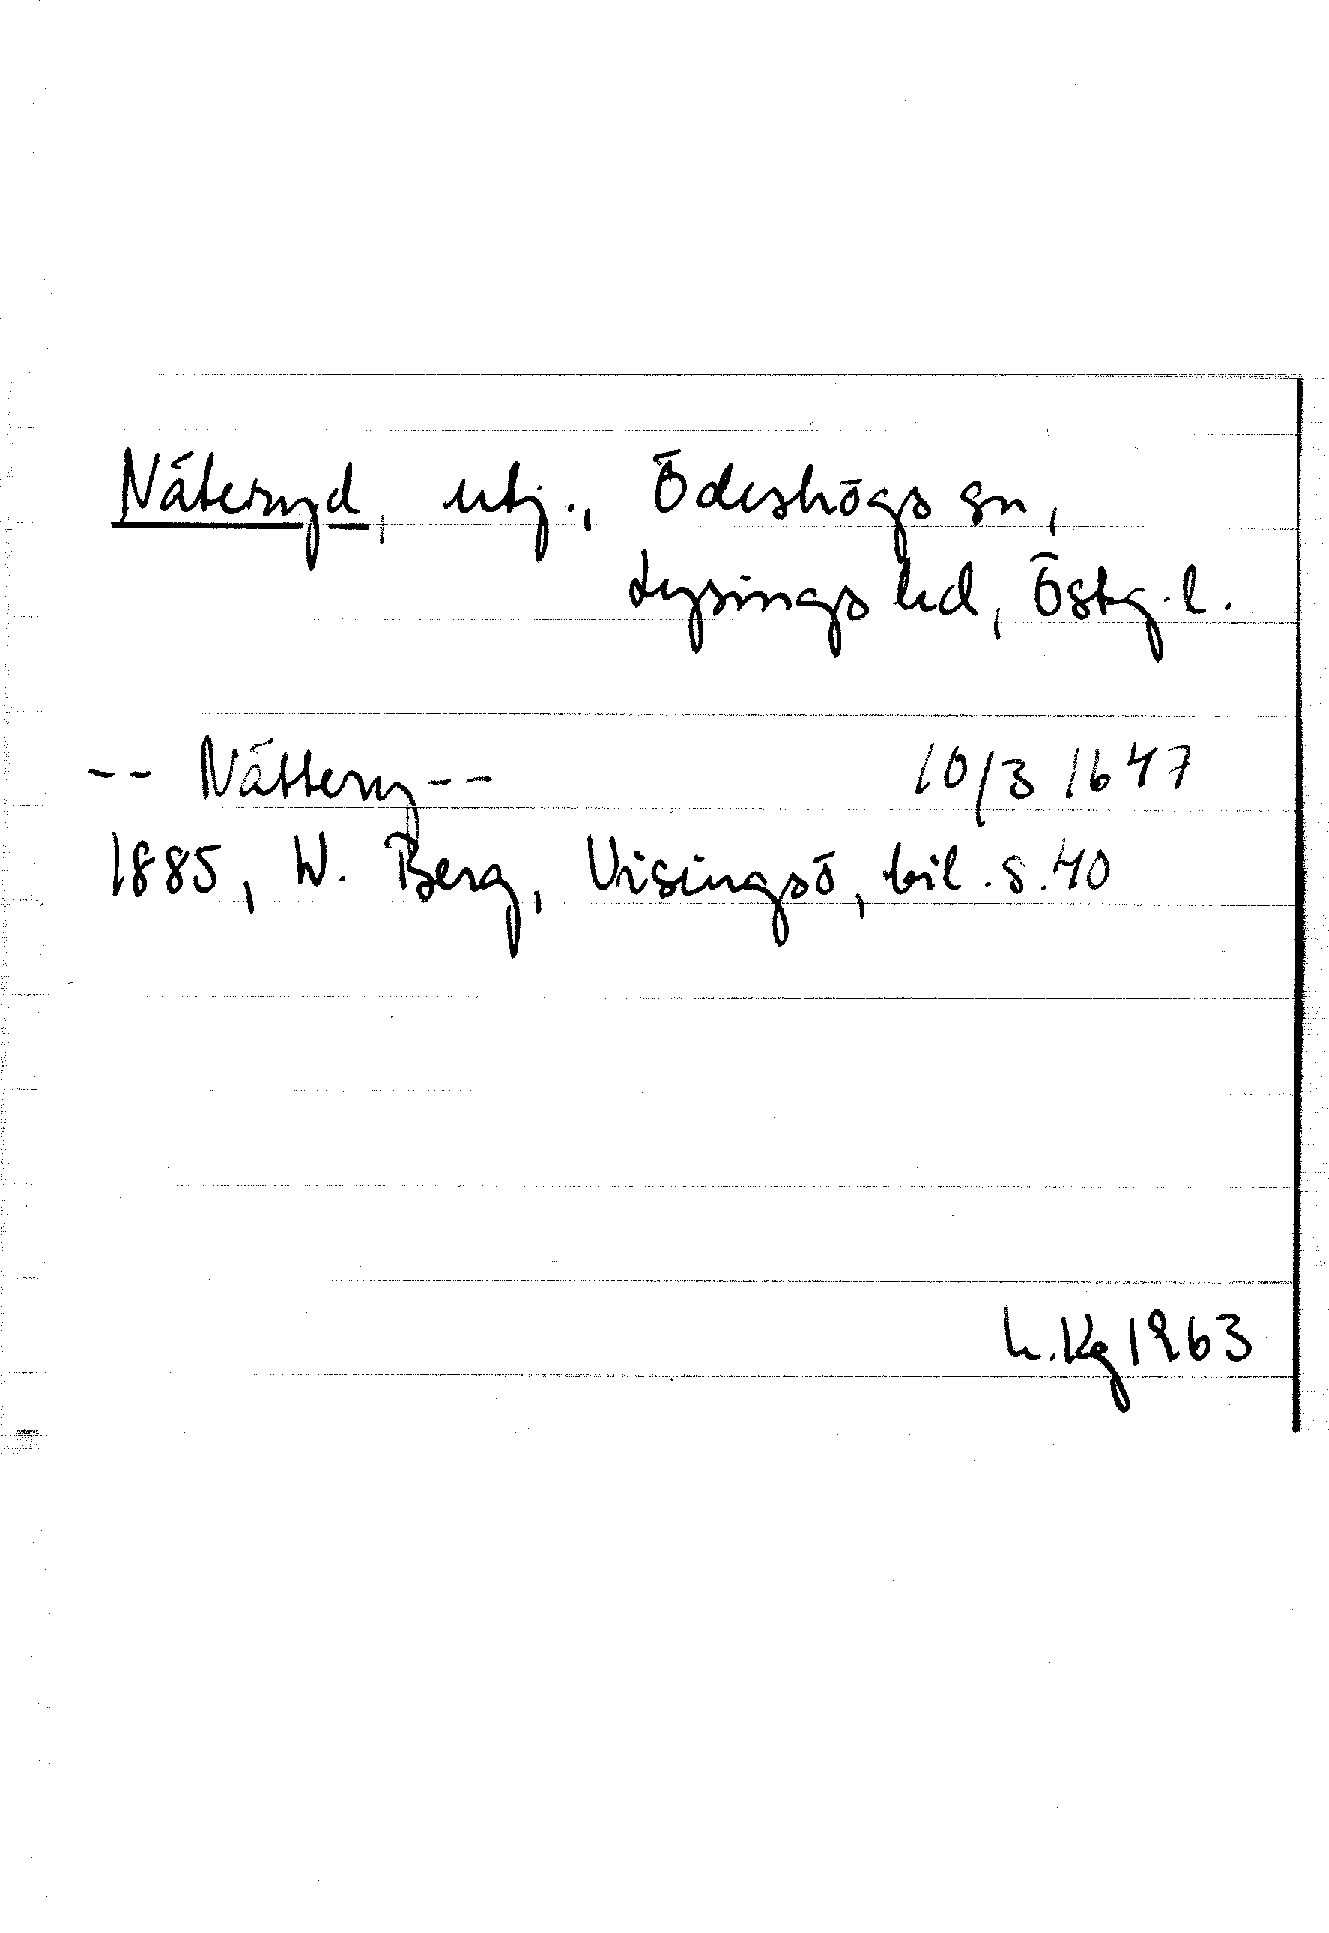 Näteryd, utj., Ödeshögs sn,
Lysings hd, Östg.l.
-- Nättery -- 10/3 1647
1885, W. Berg, Visingsö, bil. s. 40
L.Kg 1963